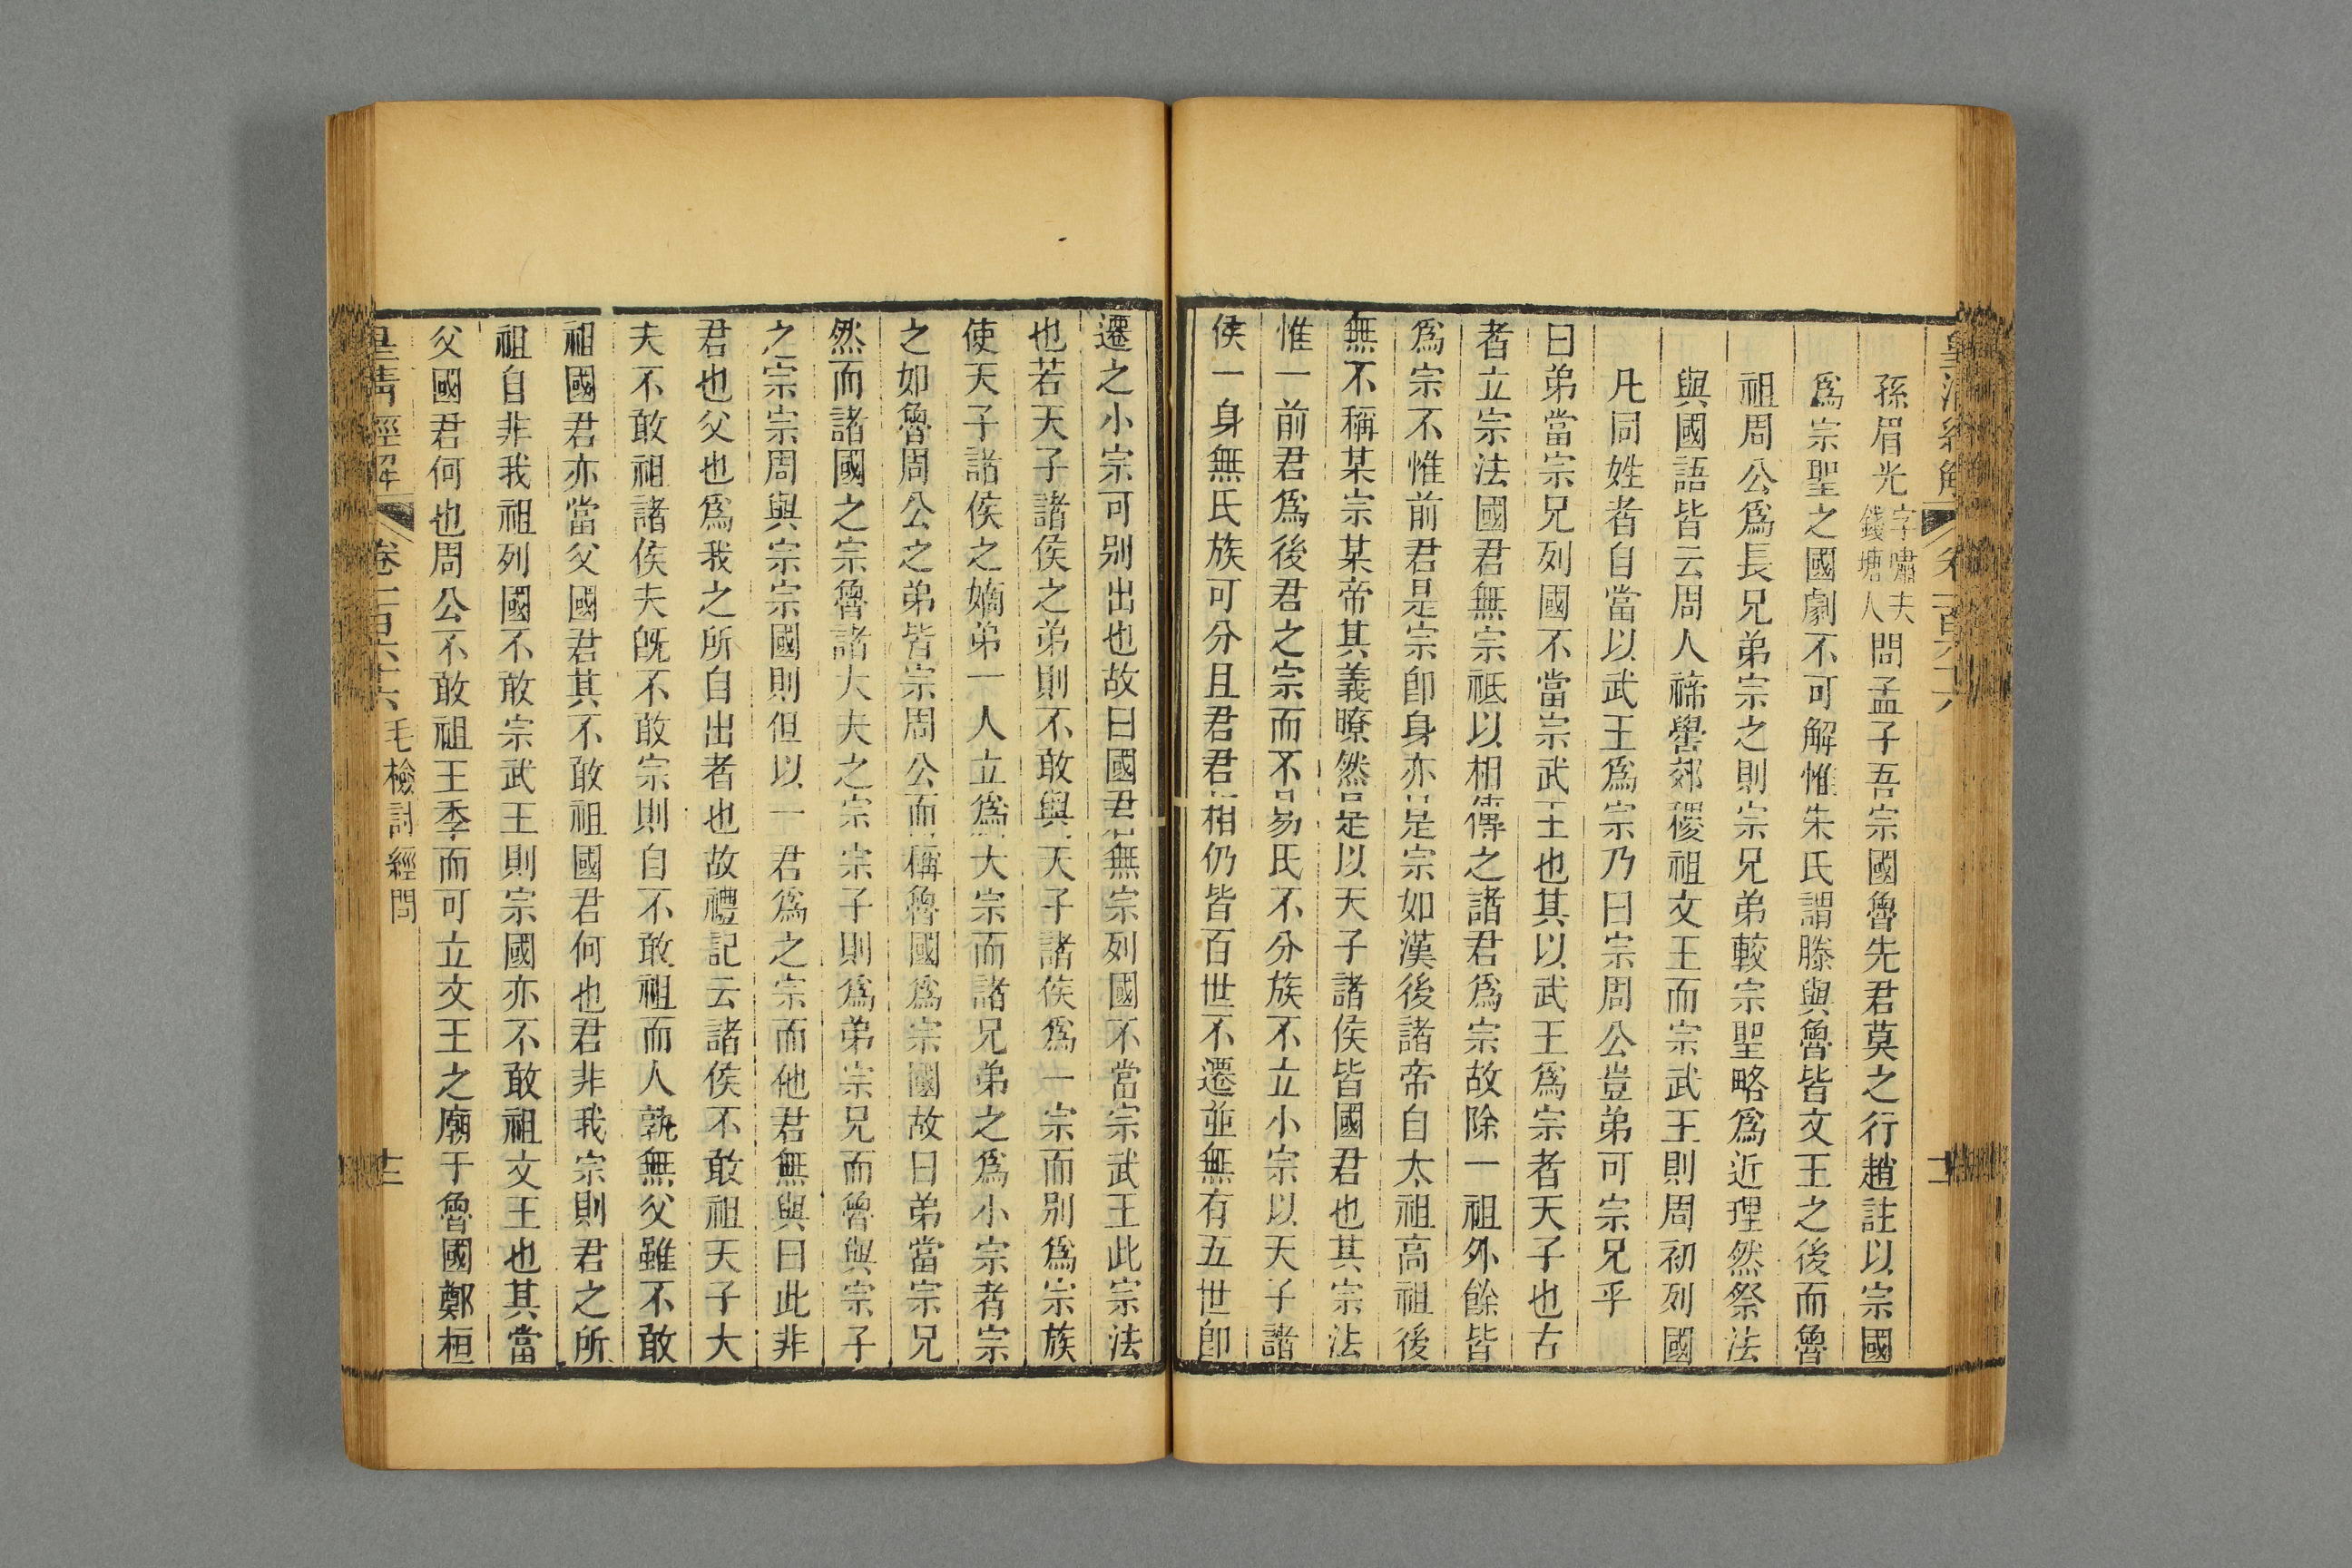 皇清經解 卷一百六十六
孫眉光字嘯夫錢塘人問孟子吾宗國魯先君莫之行趙註以宗國
爲宗聖之國劇不可解惟朱氏謂滕與魯皆文王之後而魯
祖周公爲長兄弟宗之則宗兄弟較宗聖略爲近理然祭法
與國語皆云周人禘嚳郊稷祖文王而宗武王則周初列國
凡同姓者自當以武王爲宗乃曰宗周公豈弟可宗兄乎
曰弟當宗兄列國不當宗武王也其以武王爲宗者天子也古
者立宗法國君無宗祗以相傳之諸君爲宗故除一祖外餘皆
爲宗不惟前君是宗卽身亦是宗如漢後諸帝自太祖高祖後
無不稱某宗某帝其義暸然是以天子諸侯皆國君也其宗法
惟一前君爲後君之宗而不易氏不分族不立小宗以天子諸
侯一身無氏族可分且君君相仍皆百世不遷並無有五世卽
遷之小宗可别出也故曰國君無宗列國不當宗武王此宗法
也若天子諸侯之弟則不敢與天子諸侯爲一宗而别爲宗族
使天子諸侯之嫡弟一人立爲大宗而諸兄弟之爲小宗者宗
之如魯周公之弟皆宗周公而稱魯國爲宗國故曰弟當宗兄
然而諸國之宗魯諸大夫之宗宗子則爲弟宗兄而魯與宗子
之宗宗周與宗宗國則但以一君爲之宗而他君無與曰此非
君也父也爲我之所自出者也故禮記云諸侯不敢祖天子大
夫不敢祖諸侯夫旣不敢宗則自不敢祖而人孰無父雖不敢
祖國君亦當父國君其不敢祖國君何也君非我宗則君之所
祖自非我祖列國不敢宗武王則宗國亦不敢祖文王也其當
父國君何也周公不敢祖王季而可立文王之廟于魯國鄭桓
皇清經解 卷一百六十六 毛檢討經問 十三